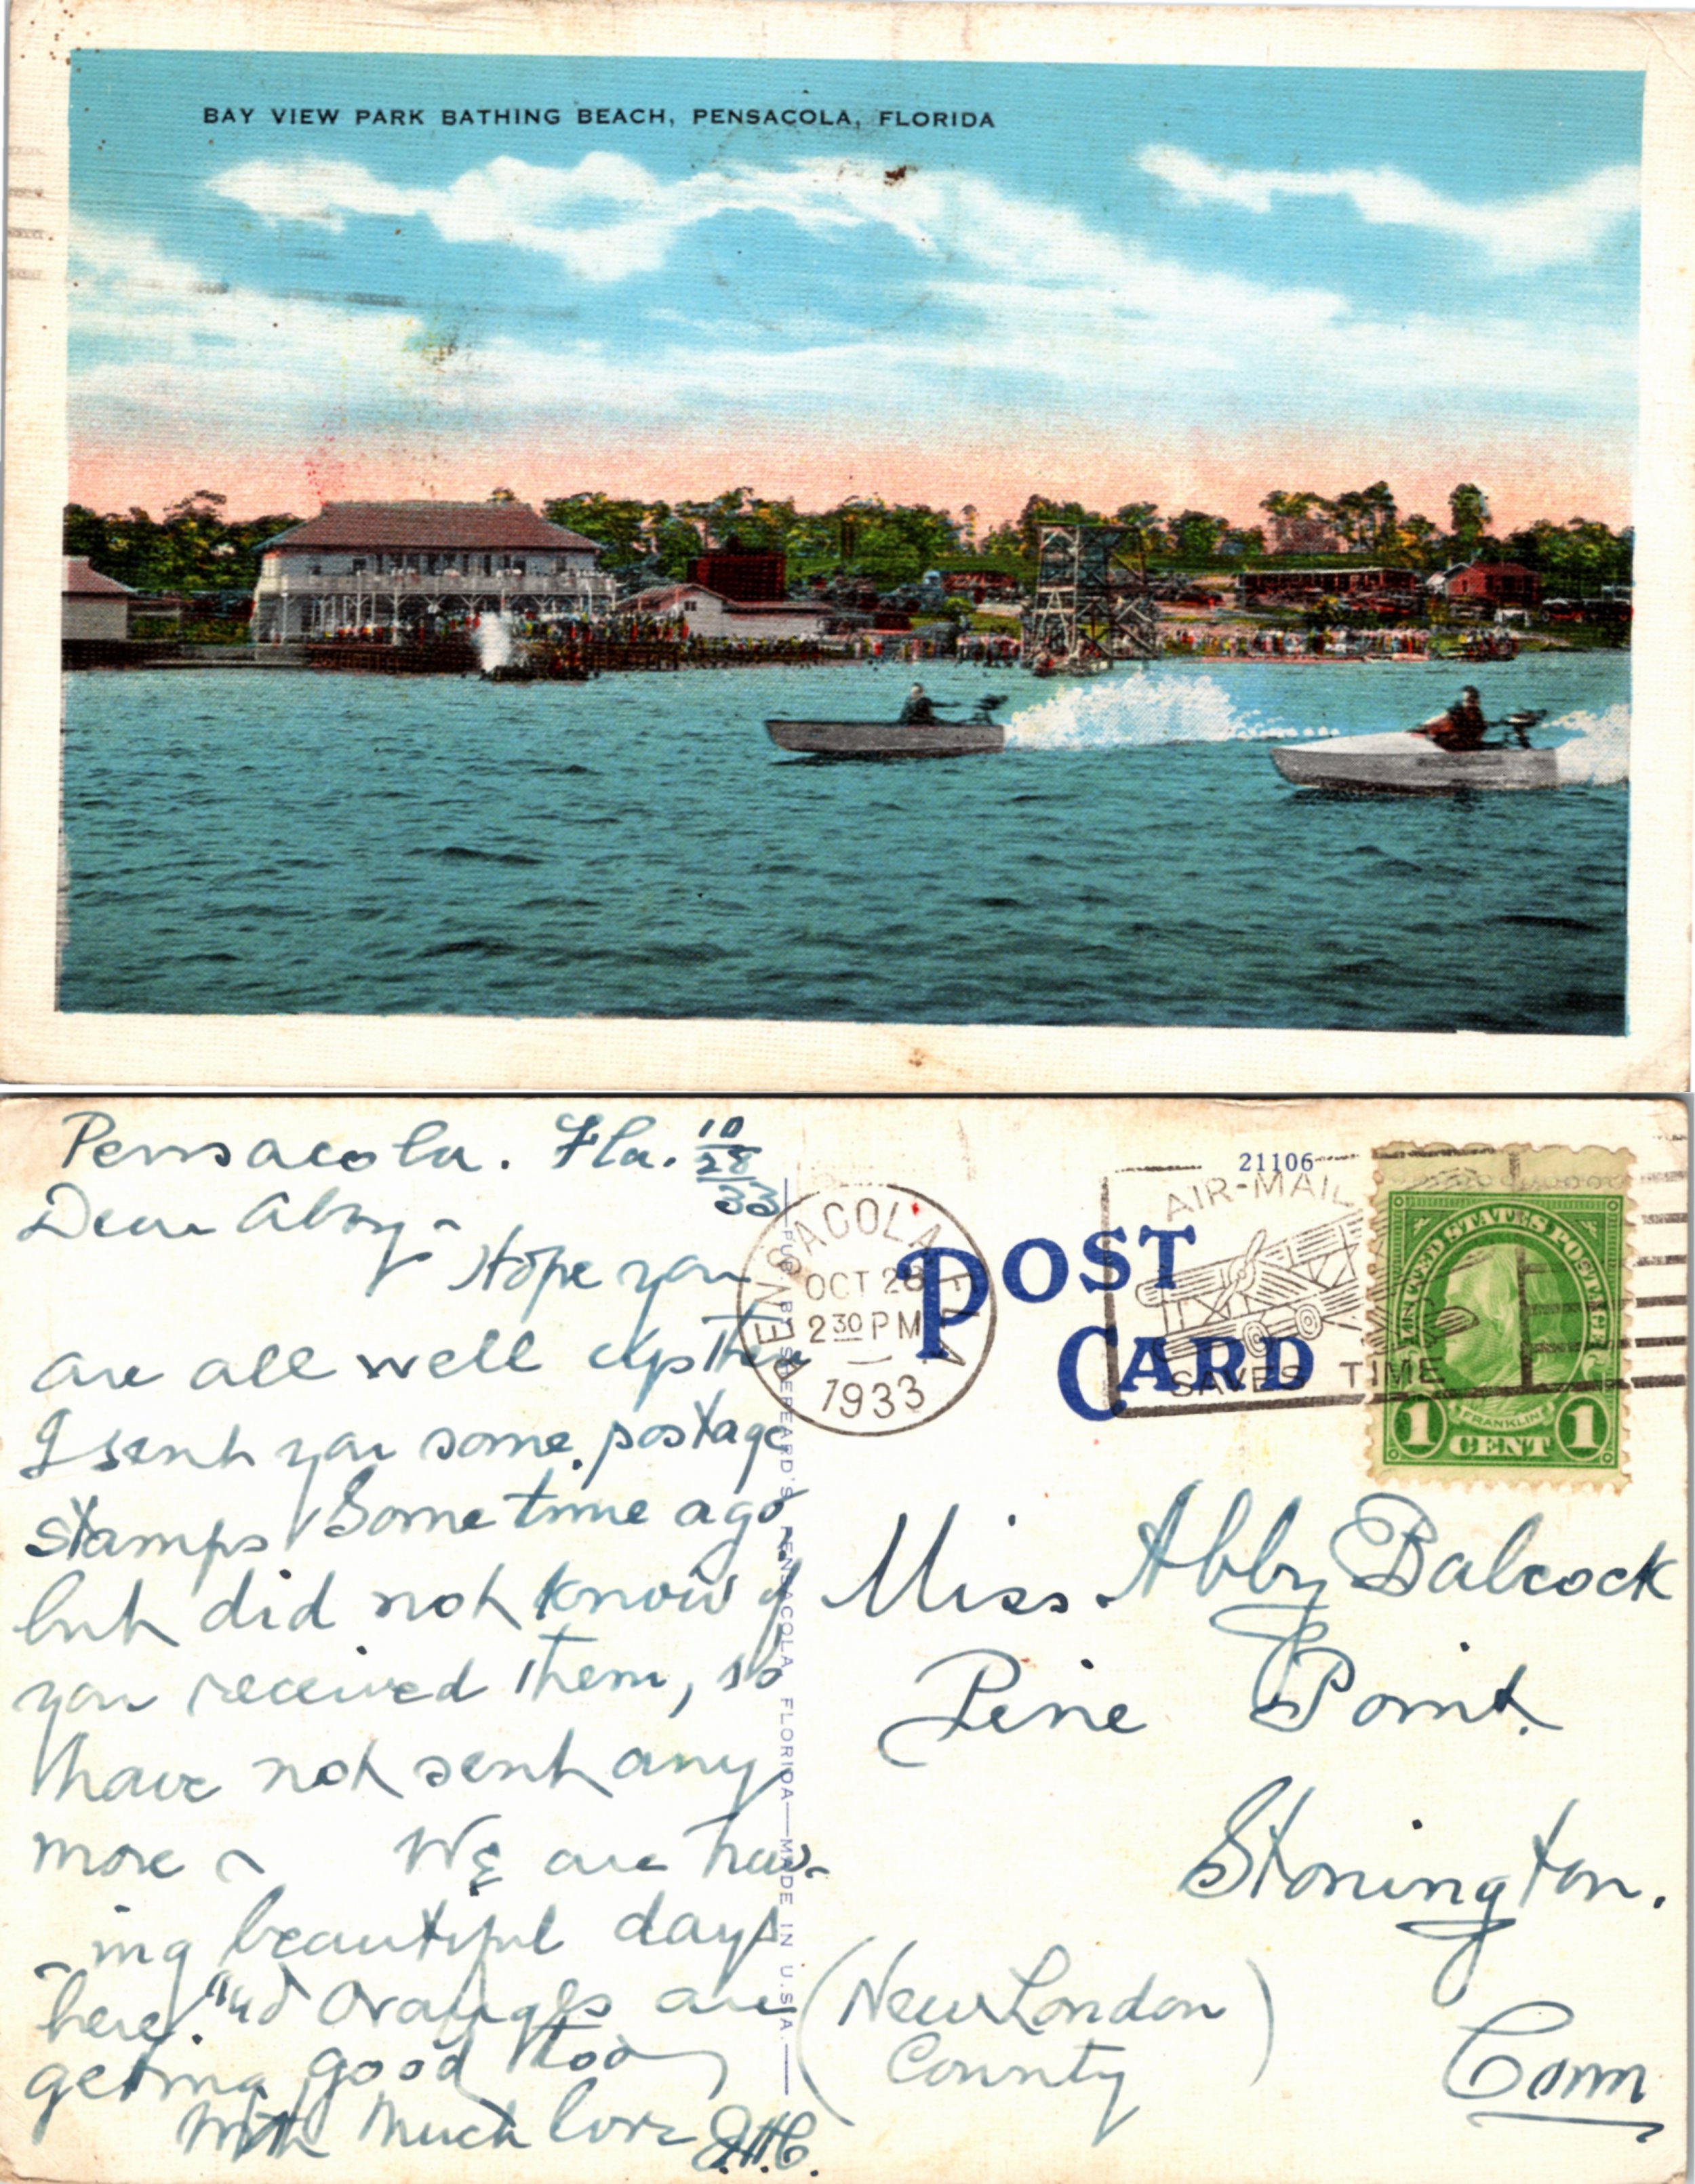 BAY VIEW PARK BATHING BEACH, PENSACOLA, FLORIDA
Pensacola. Fla. 10/28/33
Dear Abby -
Hope you
are all well up there
I sent you some postage
stamps some time ago
but did not know if
you received them, so
have not sent any
more - We are hav-
-ing beautiful days
here and oranges are
getting good too
With much love J.H.C.
PUB. BY SHEPEARD'S, PENSACOLA, FLORIDA—MADE IN U.S.A.
PENSACOLA
FLA
OCT 28
2 30 PM
1933
21106
POST
CARD
AIR-MAIL
SAVES TIME
UNITED STATES POSTAGE
FRANKLIN
1 CENT 1
Miss. Abby Babcock
Pine Point.
Stonington.
(New London
County)
Conn